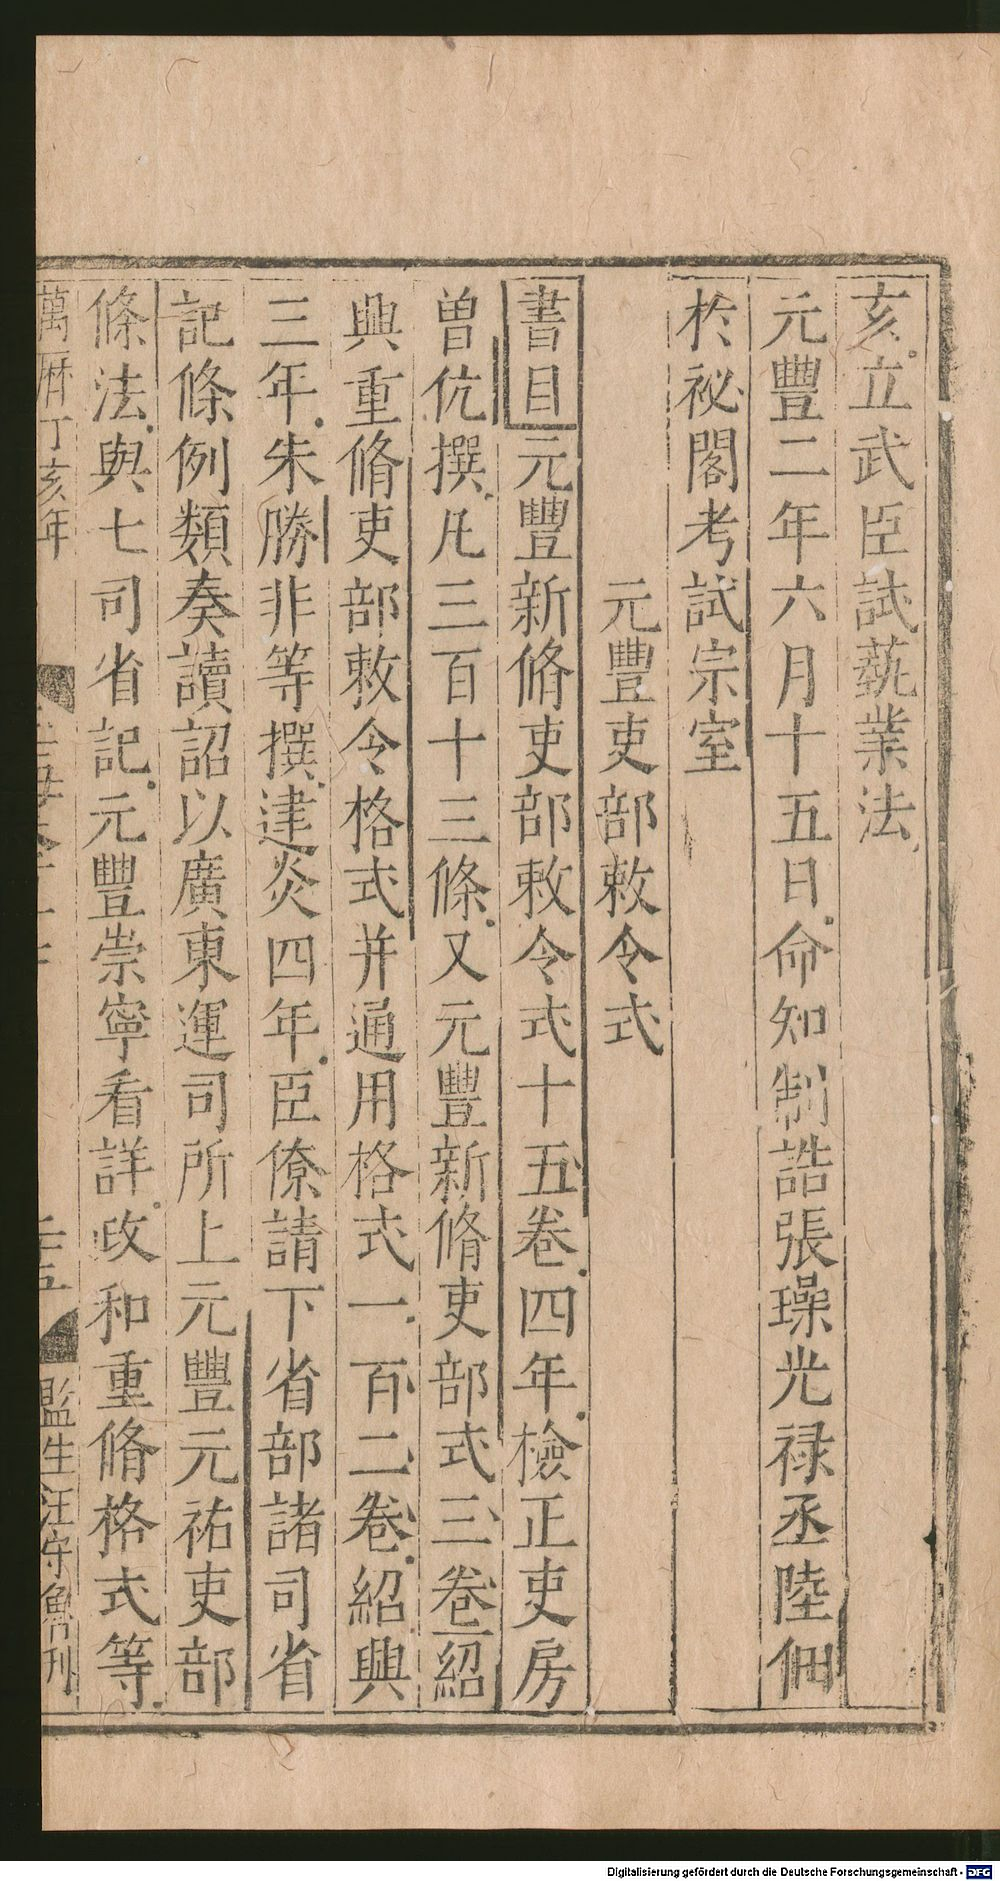 亥立武臣試蓺業法
元豐二年六月十五日命知制誥張璪光禄丞陸佃
於祕閣考試宗室
元豐吏部敕令式
書目元豐新脩吏部敕令式十五卷四年檢正吏房
曾伉撰凡三百十三條又元豐新脩吏部式三卷紹
興重脩吏部敕令格式并通用格式一百二卷紹興
三年朱勝非等撰建炎四年臣僚請下省部諸司省
記條例類奏讀詔以廣東運司所上元豐元祐吏部
條法與七司省記元豐崇寧看詳政和重脩格式等
萬曆丁亥年
監生汪守魯刊
Digitalisierung gefördert durch die Deutsche Forschungsgemeinschaft - DFG